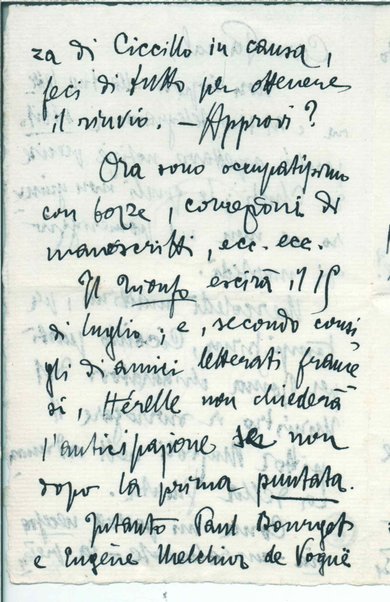 za di Ciccillo in causa,
feci di tutto per ottenere
il rinvio. — Approvi?
Ora sono occupatissimo
con bozze, correzioni di
manoscritti, ecc. ecc.
Il Trionfo escirà il 15
di luglio; e, secondo consi
gli di amici letterati france
si, Hérelle non chiederà
l'anticipazione se non
dopo la prima puntata.
Intanto Paul Bourget
e Eugène Melchior de Voguë